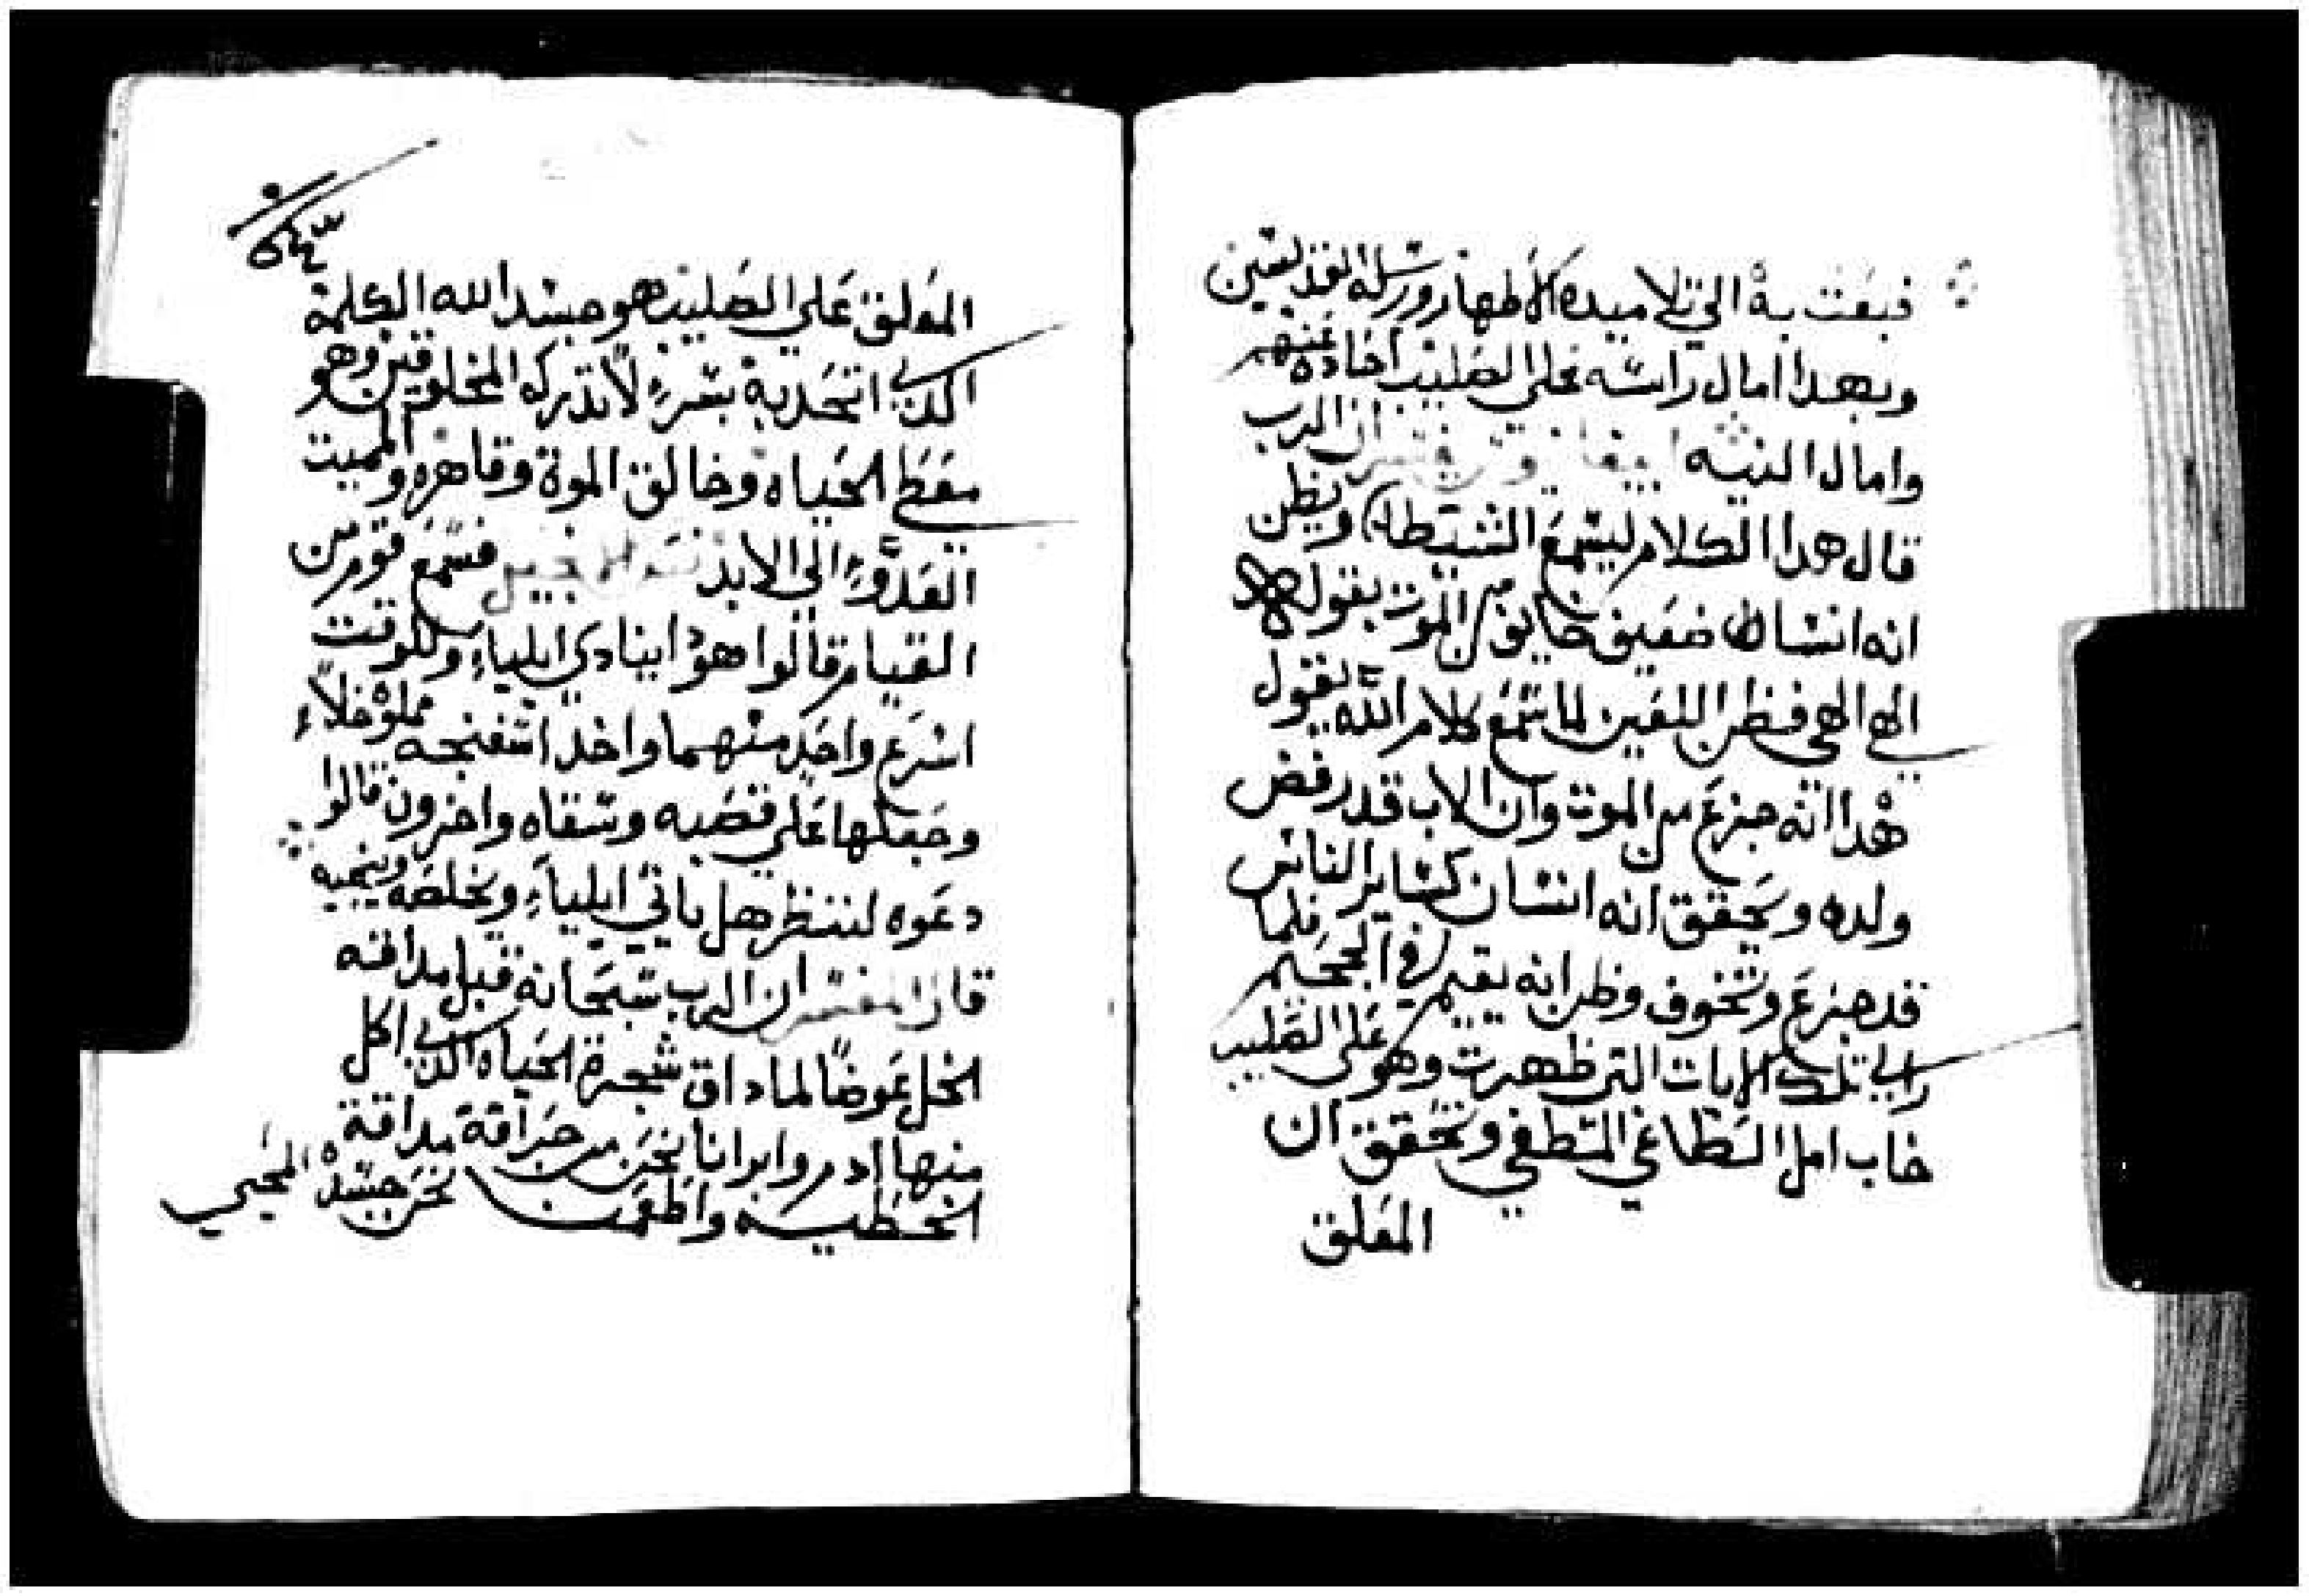 فبعت به الي تلاميده الاطهار ورسله القديسين
وبهدا امال راسه علي الصليب اخاده عنهم
وامال النيه ايضا ان الرب
قال هدا الكلام ليسمع الشيطان ويظن
انه انسان ضعيف خايف من الموت بقوله
الهي الهي فظن اللعين لما سمع كلام الله يقول
هدا انه جزع من الموت وان الاب قد رفض
ولده وتحقق انه انسان كساير الناس
قد جزع وتخوف وظن انه يقيم في الجحيم فلما
راي تلك الايات التي ظهرت وهو علي الصليب
خاب امل الطاغي المتطغي وتحقق ان
المعلق
المعلق علي الصليب هو جسد الله الكلمة
الدي اتحد به بسرء لا تدركه المخلوقين وهو
معطي الحياه وخالق الموة وقاهره ومميت
العدوء الي الابد فسمع قوم من
القيام قالوا هودا ينادي ايلياء وللوقت
اسرع واحد منهما واخد اسفنجه مملوه خلاء
وجعلها علي قصبه وسقاه واخرون قالوا
دعوه لننظر هل ياتي ايلياء ويخلصه وينجيه
قال المفسر ان الرب سبحانه قبل مداقه
الخل عوضا لما داق شجرة الحياه الدي اكل
منها ادم وابرانا نحن من حراقة مداقة
الخطيه واطعمنا نحن جسده المحيي